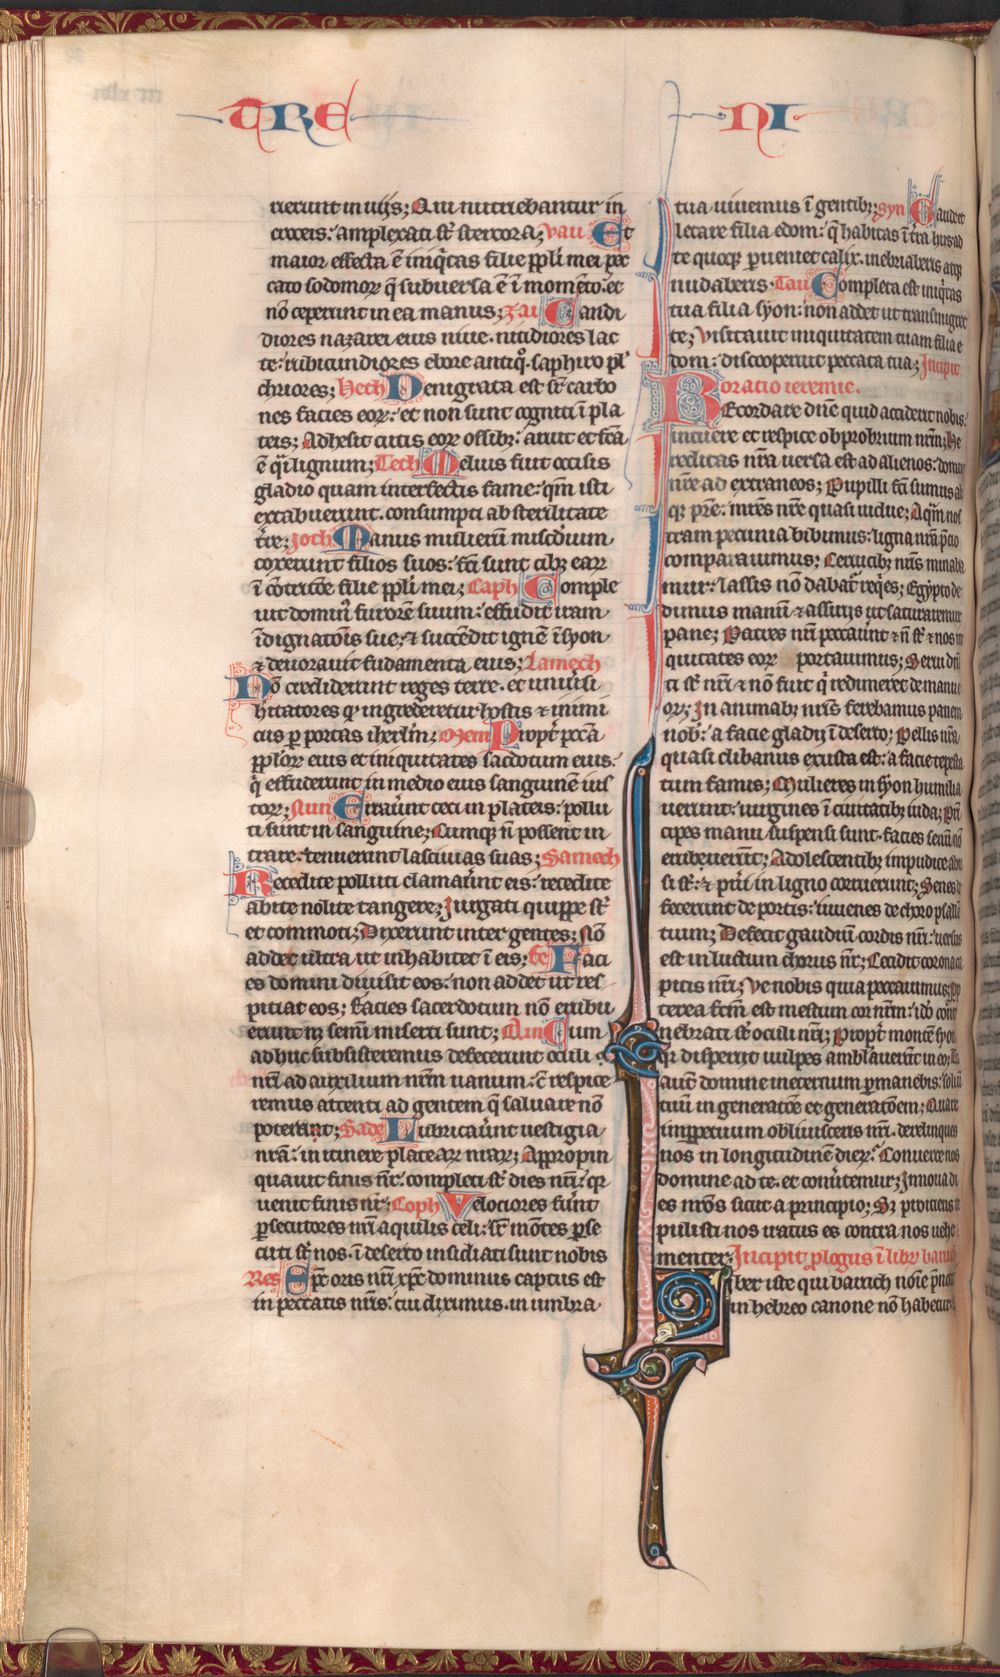 TRE NI
rierunt in uiis; Qui nutriebantur in
croceis: amplexati st̄ stercora; vau Et
maior effecta ē iniq̃tas filie ppl̓i mei pec
cato sodomoꝝ q̄ subuersa ē ī momēto: et
nō ceperunt in ea manus; zai Candi
diores nazarei eius niue. nitidiores lac
te: rubicundiores ebore antiq̊. saphiro pl̓
chriores; Heth Denigrata est sr̄ carbo
nes facies eoꝝ: et non sunt cogniti ī pla
teis; Adhesit cutis eoꝝ ossibꝫ: aruit et fc̄a
ē q̄i lignum; Teth Melius fuit occisis
gladio quam interfectis fame: qm̄ isti
extabuerunt. consumpti ab sterilitate
tr̄e; Joth Manus mulierū miscd̓ium
coxerunt filios suos: fc̄i sunt cibꝫ eaꝝ
ī cōtric̄oe filie ppl̓i mei; Caph Comple
uit domin̓ furorē suum: effudit iram
īdignatoīs sue; ⁊ succēdit ignē ī syon
⁊ deuorauit fūdamenta eius; Lamech
Nō crediderunt reges terre. et uniuẜi
hītatores qꝫ ingrederetur hostis ⁊ inimi
cus ꝑ portas iherl̄m; Mem Propt̓ pcc̄a
ꝓph̓oꝝ eius et iniquitates sac̓dotum eius.
q̓ effuderunt in medio eius sanguinē ius
toꝝ; Nun Errauer̄t ceci in plateis: pollu
ti sunt in sanguine; Cumqꝫ n̄ possent in
trare: tenuerunt lascinias suas; Samech
Recedite polluti clamauer̄t eis: recedite
abite nolite tangere; Jurgati quippe st̄
et commoti; Dixerunt inter gentes; Nō
addet ultra ut inhabitet ī eis; Fe Faci
es domini diuisit eos: non addet ut res
piciat eos; Facies sacerdotum nō erubu
erunt nꝫ senū miserti sunt; Ain Cum
adhuc subsisteremus defecerunt oculi
nr̄i ad auxilium nr̄m uanum: c̄ respice
remus attenti ad gentem q̄ saluare nō
poterant; Sade Lubricauer̄t uestigia
nr̄a: in itinere plateaꝝ nraꝝ; Appropin
quauit finis nr̄: completi st̄ dies nr̄i: qꝛ
uenit finis nr̄; Coph Velociores fuer̄t
ꝑsecutores nr̄i aquilis celi: sr̄ mōtes ꝑse
cuti st̄ nos. ī deserto insidiati sunt nobis
Res Spc̄ oris nr̄i xp̄c dominus captus est
in peccatis nr̄is: cui diximus. in umbra
tua uiuemus ī gentibꝫ; syn Gaude et
letare filia edom: q̄ habitas ī tr̄a hus ad
te quoqꝫ ꝑueniet calix. inebriaberis atqꝫ
nudaberis. Tau Completa est iniq̃tas
tua filia syon: non addet ut transmigret
te; Visitauit iniquitatem tuam filia e
dom: discooperuit peccata tua; Incipit
oratio ieremie.
REcordare dn̄e quid acciderit nobis:
intuere et respice obprobrium nr̄m; He
reditas nr̄a uersa est ad alienos: domus
nr̄e ad extraneos; Pupilli fc̄i sumus ab
qꝫ pr̄e: mr̄es nr̄e quasi uidue; Aq̄m nos
tram pecunia bibimus: ligna nr̄a p̄cio
comparauimus; Ceruicibꝫ nr̄is minaba
mur: lassis nō dabat̄ req̄es; Egypto de
dimus manū ⁊ assiriis ut saturaremur
pane; Patres nr̄i peccauer̄t ⁊ n̄ st̄ ⁊ nos in
quitates eoꝝ portauimus; Serui dn̄i
ti st̄ nr̄i ⁊ nō fuit q̓ redimeret de manu
eoꝝ; In animabꝫ nr̄is ferebamus panem
nob̓: a facie gladii ī deserto; Pellis nr̄a
quasi clibanus exusta est: a facie tēpesta
tum famis; Mulieres in syon humilia
uerunt: uirgines ī ciuitatibꝫ iuda; Pri
cipes manu suspensi sunt. facies senū nō
erubuerūt; Adolescentibꝫ impudice abu
si st̄: ⁊ pu̓i in ligno corruerunt; Senes d
fecerunt de portis: iuuenes de choro psalle
tium; Defecit gaudiū cordis nr̄i: uersus
est in luctum chorus nr̄; Cecidit corona ca
pitis nr̄i; Ve nobis quia peccauimus; pp̄
terea fc̄m est mestum cor nr̄m: id̓o con̄
nebrati st̄ oculi nr̄i; Propt̓ montē syon
qꝛ disperiit uulpes ambulauer̄t in eo; Tu
aut̄ domine in eternum ꝑmanebis: soliū
tuū in generatōe et generatōem; Quare
in ꝑpetuum obliuisceris nr̄i. derelinques
nos in longitudinē dieꝝ: Conuerte nos
domine ad te. et conu̓temur; Innoua di
es nr̄os sicut a principio; Sꝫ proiciens re
pulisti nos iratus es contra nos uehe
menter; Incipit ꝓlogus ī libꝝ baruch
Liber iste qui baruch nōie p̄not
in hebreo canone nō habetur